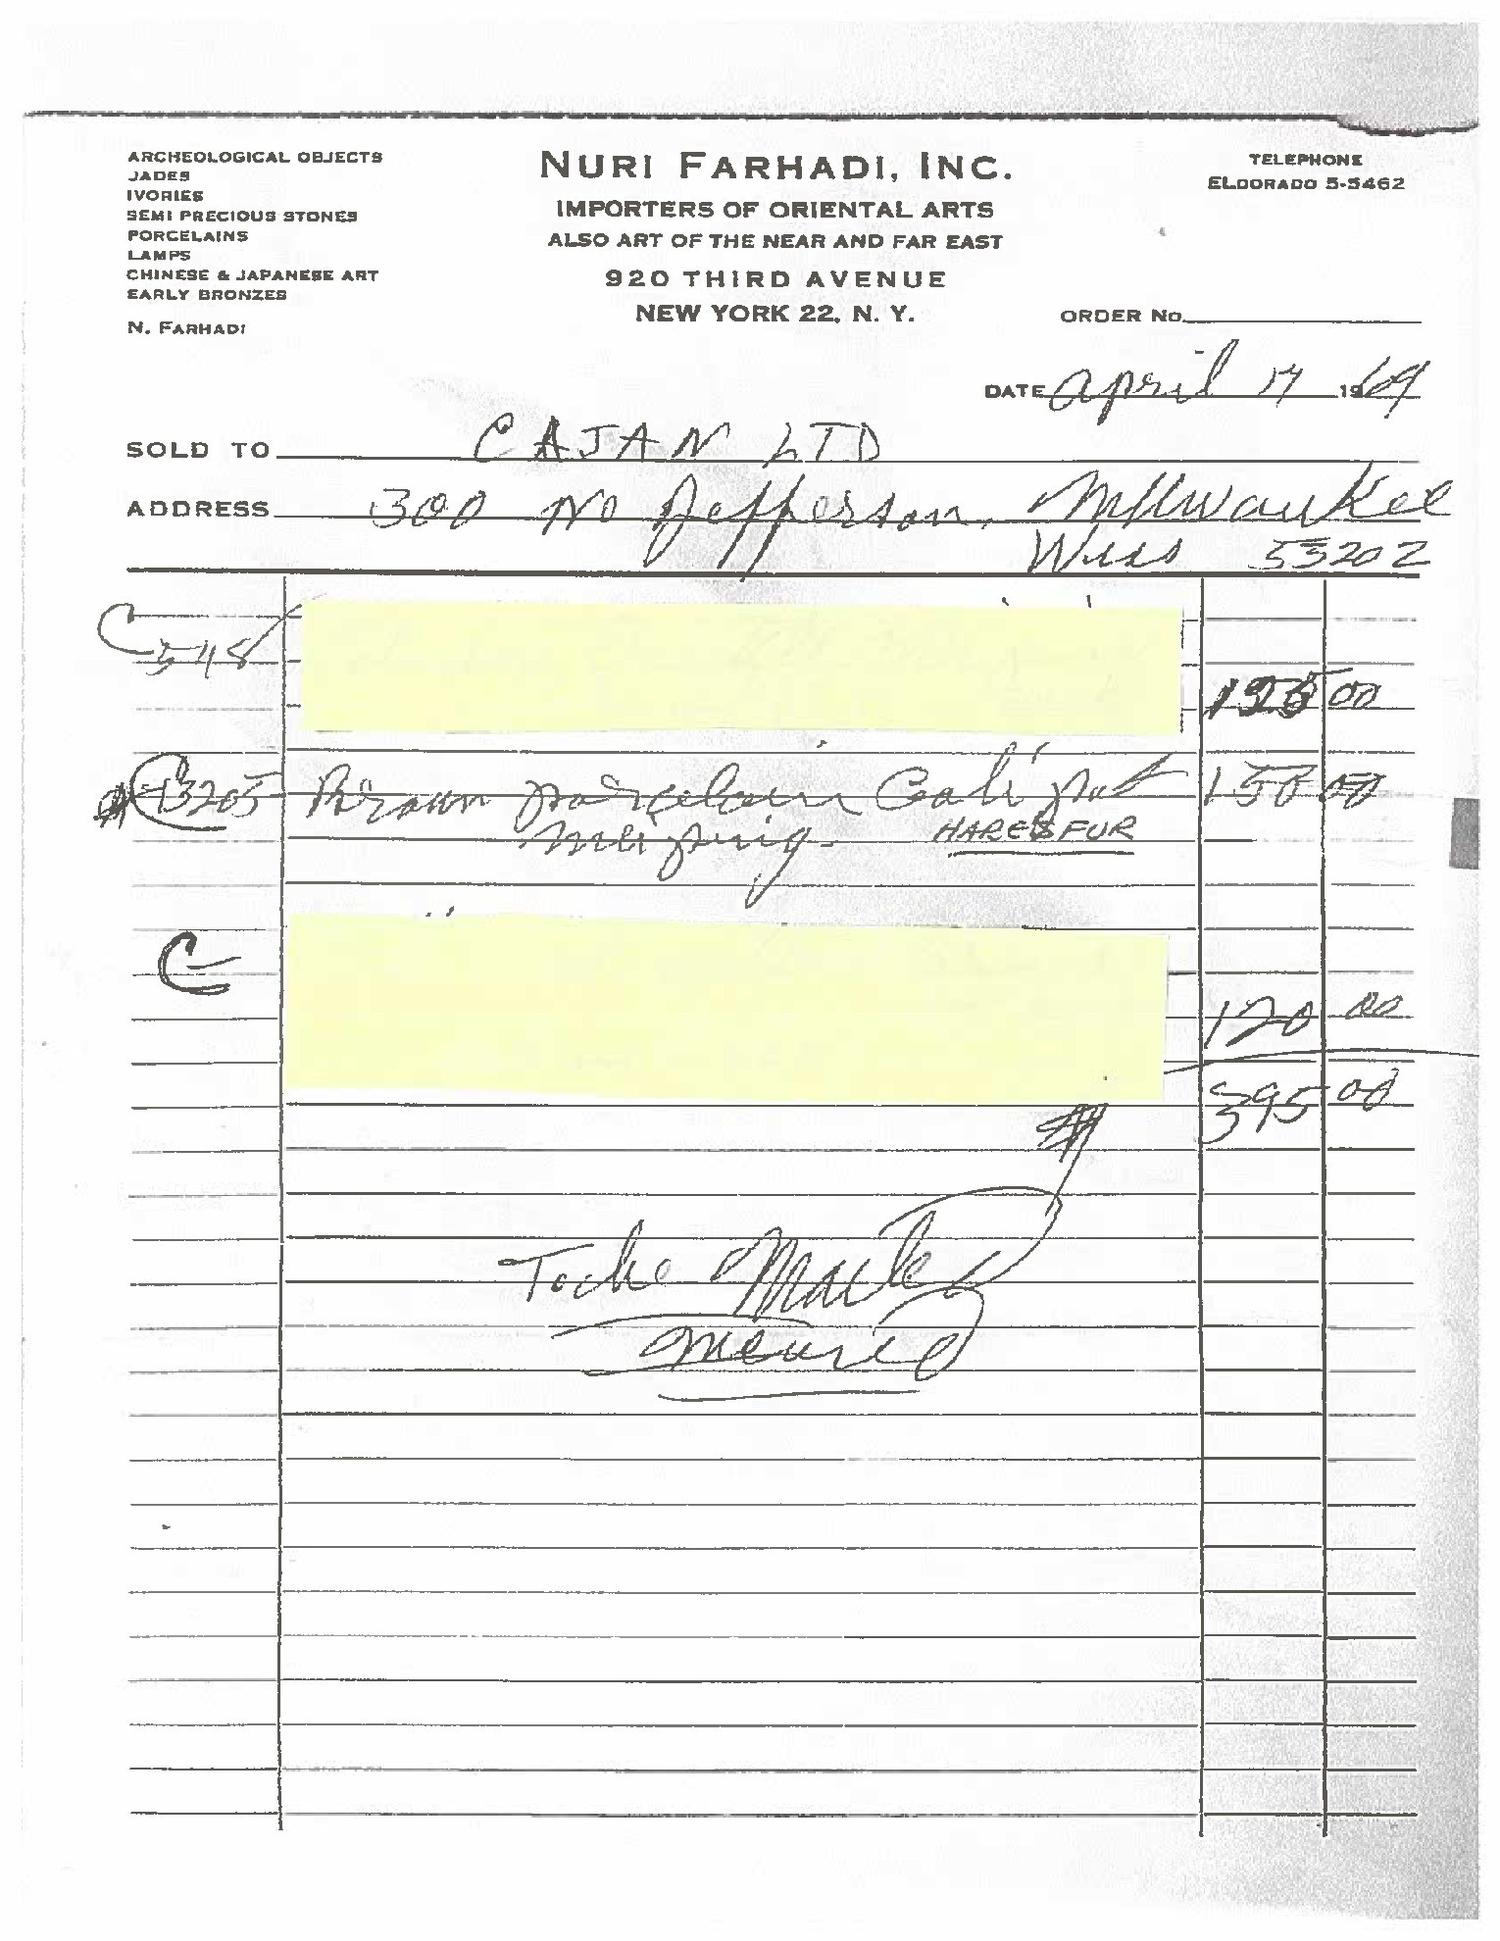 ARCHEOLOGICAL OBJECTS
JADES
IVORIES
SEMI PRECIOUS STONES
PORCELAINS
LAMPS
CHINESE & JAPANESE ART
EARLY BRONZES
N. FARHADI
NURI FARHADI, INC.
IMPORTERS OF ORIENTAL ARTS
ALSO ART OF THE NEAR AND FAR EAST
920 THIRD AVENUE
NEW YORK 22, N. Y.
TELEPHONE
ELDORADO 5-5462
ORDER No.
DATE April 17 1969
SOLD TO CAJAN LTD
ADDRESS 300 No Jefferson, Milwaukee
Wiss 53202
C 548
125 00
C 3205 Brown porcelain pot 150 00
meiping HARES FUR
C
120 00
395 00